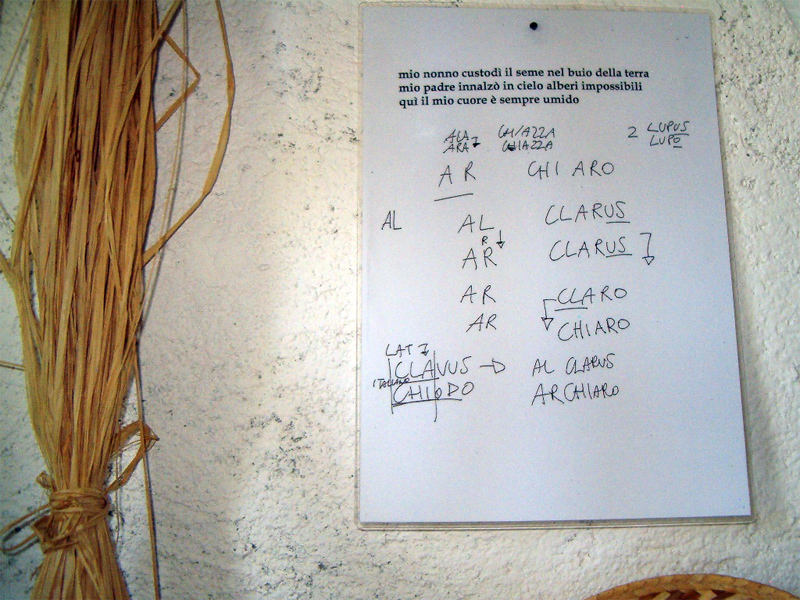 mio nonno custodì il seme nel buio della terra
mio padre innalzò in cielo alberi impossibili
quì il mio cuore è sempre umido
ALA CHIAZZA 2 LUPUS
ARA CHIAZZA LUPO
AR CHI ARO
AL AL CLARUS
R
AR CLARUS
AR CLARO
AR CHIARO
LAT
CLAVUS AL CLARUS
ITALIANO
CHIODO AR CHIARO